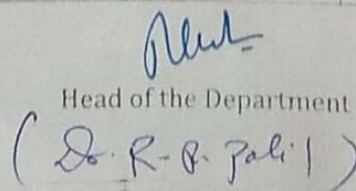 Head of the Department
( Dr. R. P. Patil )